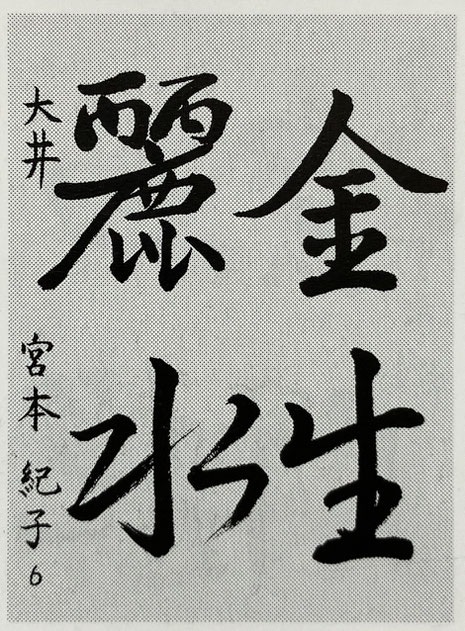 金生
麗水
大井 宮本 紀子 6